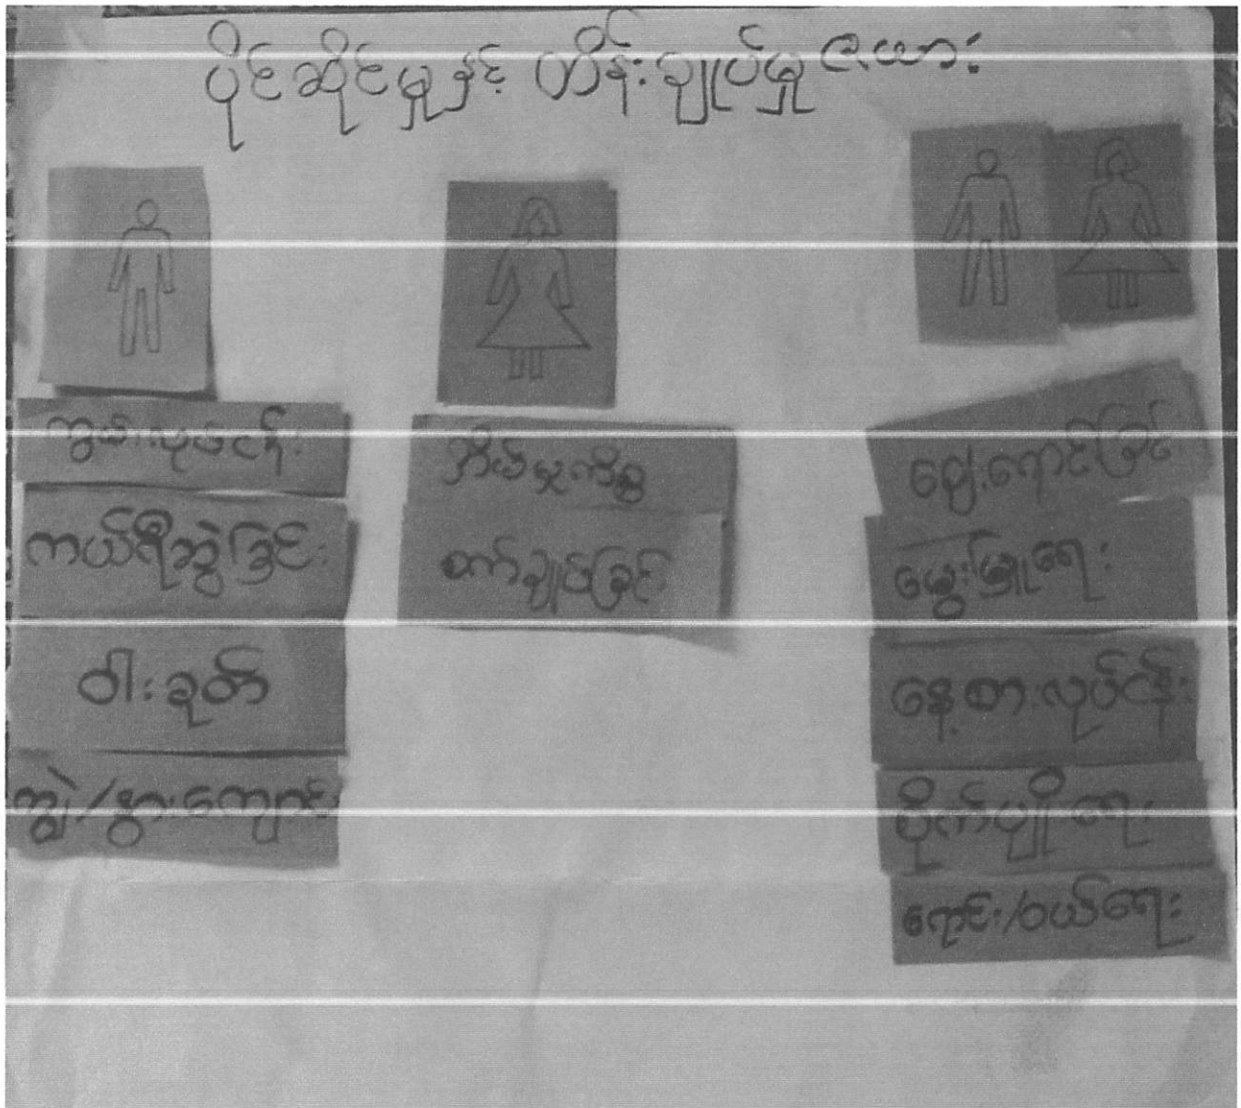 ပိုင်ဆိုင်မှုနှင့် ထိန်းချုပ်မှု ဇယား
ကွမ်းလုပ်ငန်း
ကယ်ရီဆွဲခြင်း
ဝါးခုတ်
ကျွဲ/နွားကျောင်း
အိမ်မှုကိစ္စ
စက်ချုပ်ခြင်း
ဈေးရောင်းခြင်း
မွေးမြူရေး
နေ့စားလုပ်ငန်း
စိုက်ပျိုးရေး
ရောင်း/ဝယ်ရေး